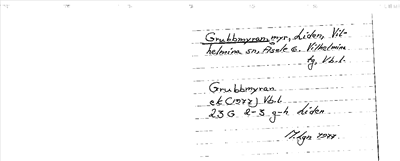 Grubbmyran, myr, Liden, Vil-
helmina sn, Åsele l. Vilhelmina
tg, Vb.l.
Grubbmyran
ek (1977) Vb.l
23 G 2-3 g-h Liden
1977